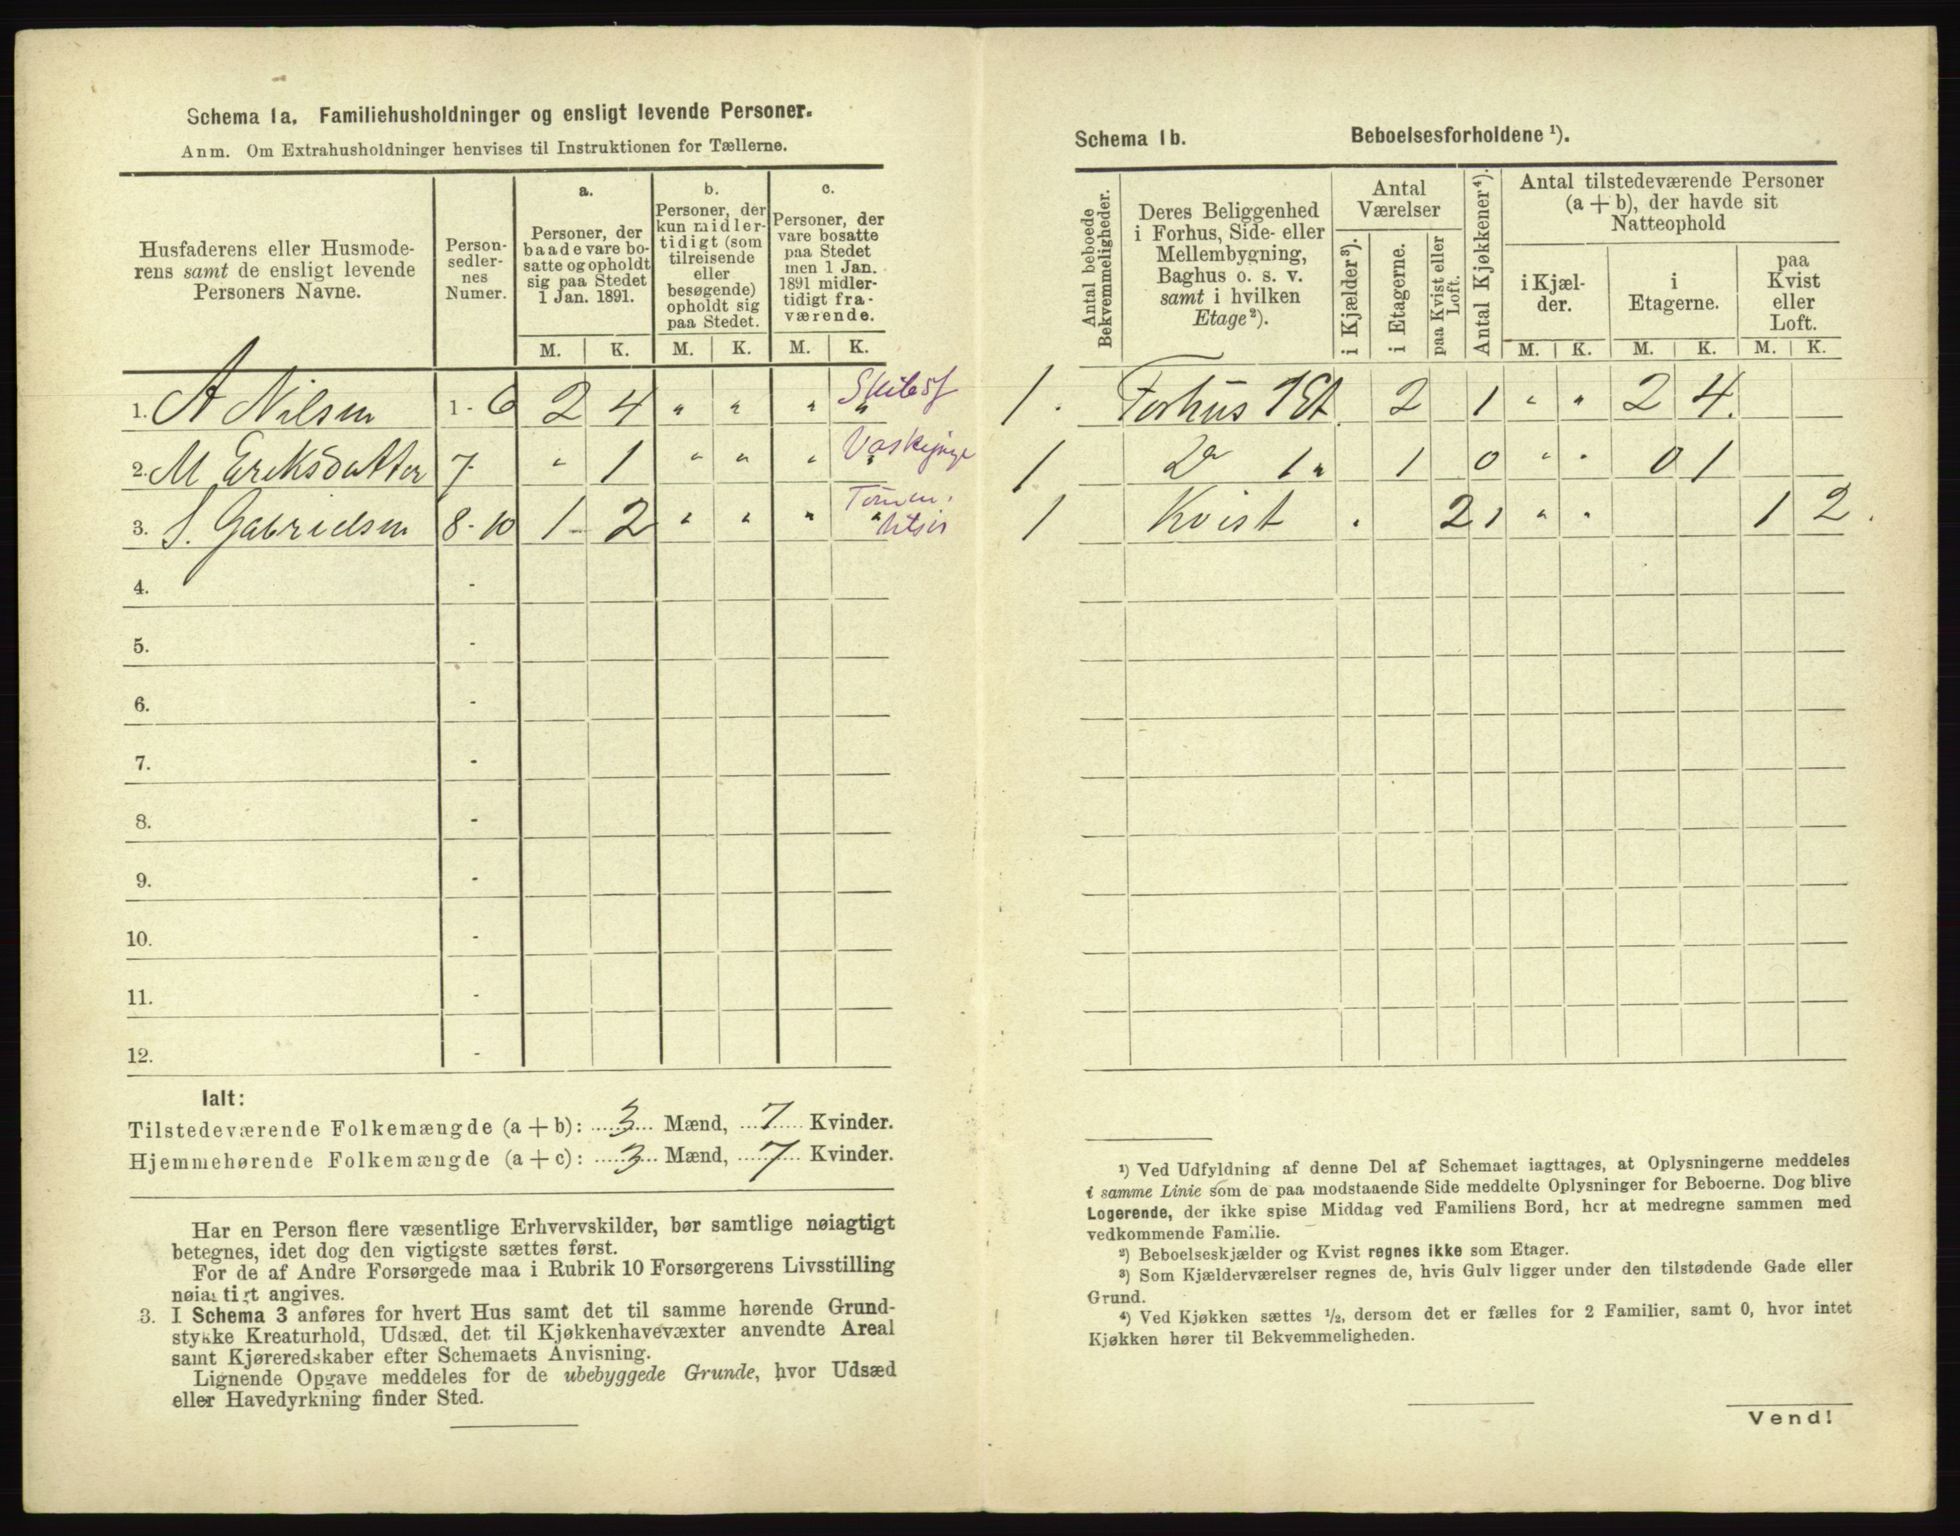 Schema 1a. Familiehusholdninger og ensligt levende Personer.
Anm. Om Extrahusholdninger henvises til Instruktionen for Tællerne.
Husfaderens eller Husmode-
rens samt de ensligt levende
Personers Navne.
Person-
sedler-
nes
Numer.
a.
Personer, der
baade vare bo-
satte og opholdt
sig paa Stedet
1 Jan. 1891.
b.
Personer, der
kun midler-
tidigt (som
tilreisende
eller
besøgende)
opholdt sig
paa Stedet.
c.
Personer, der
vare bosatte
paa Stedet
men 1 Jan.
1891 midler-
tidigt fra-
værende.
M. K. M. K. M. K.
1. A Nilsen 1 - 6 2 4 " " " "
2. M Eriksdatter 7 - " 1 " " " " Vaskepige
3. S. Gabrielsen 8 - 10 1 2 " " " "
4. -
5. -
6. -
7. -
8. -
9. -
10. -
11. -
12. -
Ialt:
Tilstedeværende Folkemængde (a + b): 3 Mænd, 7 Kvinder.
Hjemmehørende Folkemængde (a + c): 3 Mænd, 7 Kvinder.
Har en Person flere væsentlige Erhvervskilder, bør samtlige nøiagtigt
betegnes, idet dog den vigtigste sættes først.
For de af Andre Forsørgede maa i Rubrik 10 Forsørgerens Livsstilling
nøiagtigt angives.
3. I Schema 3 anføres for hvert Hus samt det til samme hørende Grund-
stykke Kreaturhold, Udsæd, det til Kjøkkenhavevæxter anvendte Areal
samt Kjøreredskaber efter Schemaets Anvisning.
Lignende Opgave meddeles for de ubebyggede Grunde, hvor Udsæd
eller Havedyrkning finder Sted.
Schema 1b. Beboelsesforholdene ¹).
Antal beboede
Bekvemmeligheder.
Deres Beliggenhed
i Forhus, Side- eller
Mellembygning,
Baghus o. s. v.
samt i hvilken
Etage²).
Antal
Værelser
i Kjælder³).
i Etagerne.
paa Kvist eller
Loft.
Antal Kjøkkener⁴).
Antal tilstedeværende Personer
(a + b), der havde sit
Natteophold
i Kjæl-
der.
i
Etagerne.
paa
Kvist
eller
Loft.
M. K. M. K. M. K.
1. Forhus 1 Et. 2 1 " " 2 4.
1 Do 1 " 1 0 " " 0 1
1 Kvist . 2 1 " " 1 2.
¹) Ved Udfyldning af denne Del af Schemaet iagttages, at Oplysningerne meddeles
i samme Linie som de paa modstaaende Side meddelte Oplysninger for Beboerne. Dog blive
Logerende, der ikke spise Middag ved Familiens Bord, her at medregne sammen med
vedkommende Familie.
²) Beboelseskjælder og Kvist regnes ikke som Etager.
³) Som Kjælderværelser regnes de, hvis Gulv ligger under den tilstødende Gade eller
Grund.
⁴) Ved Kjøkken sættes ½, dersom det er fælles for 2 Familier, samt 0, hvor intet
Kjøkken hører til Bekvemmeligheden.
Vend!